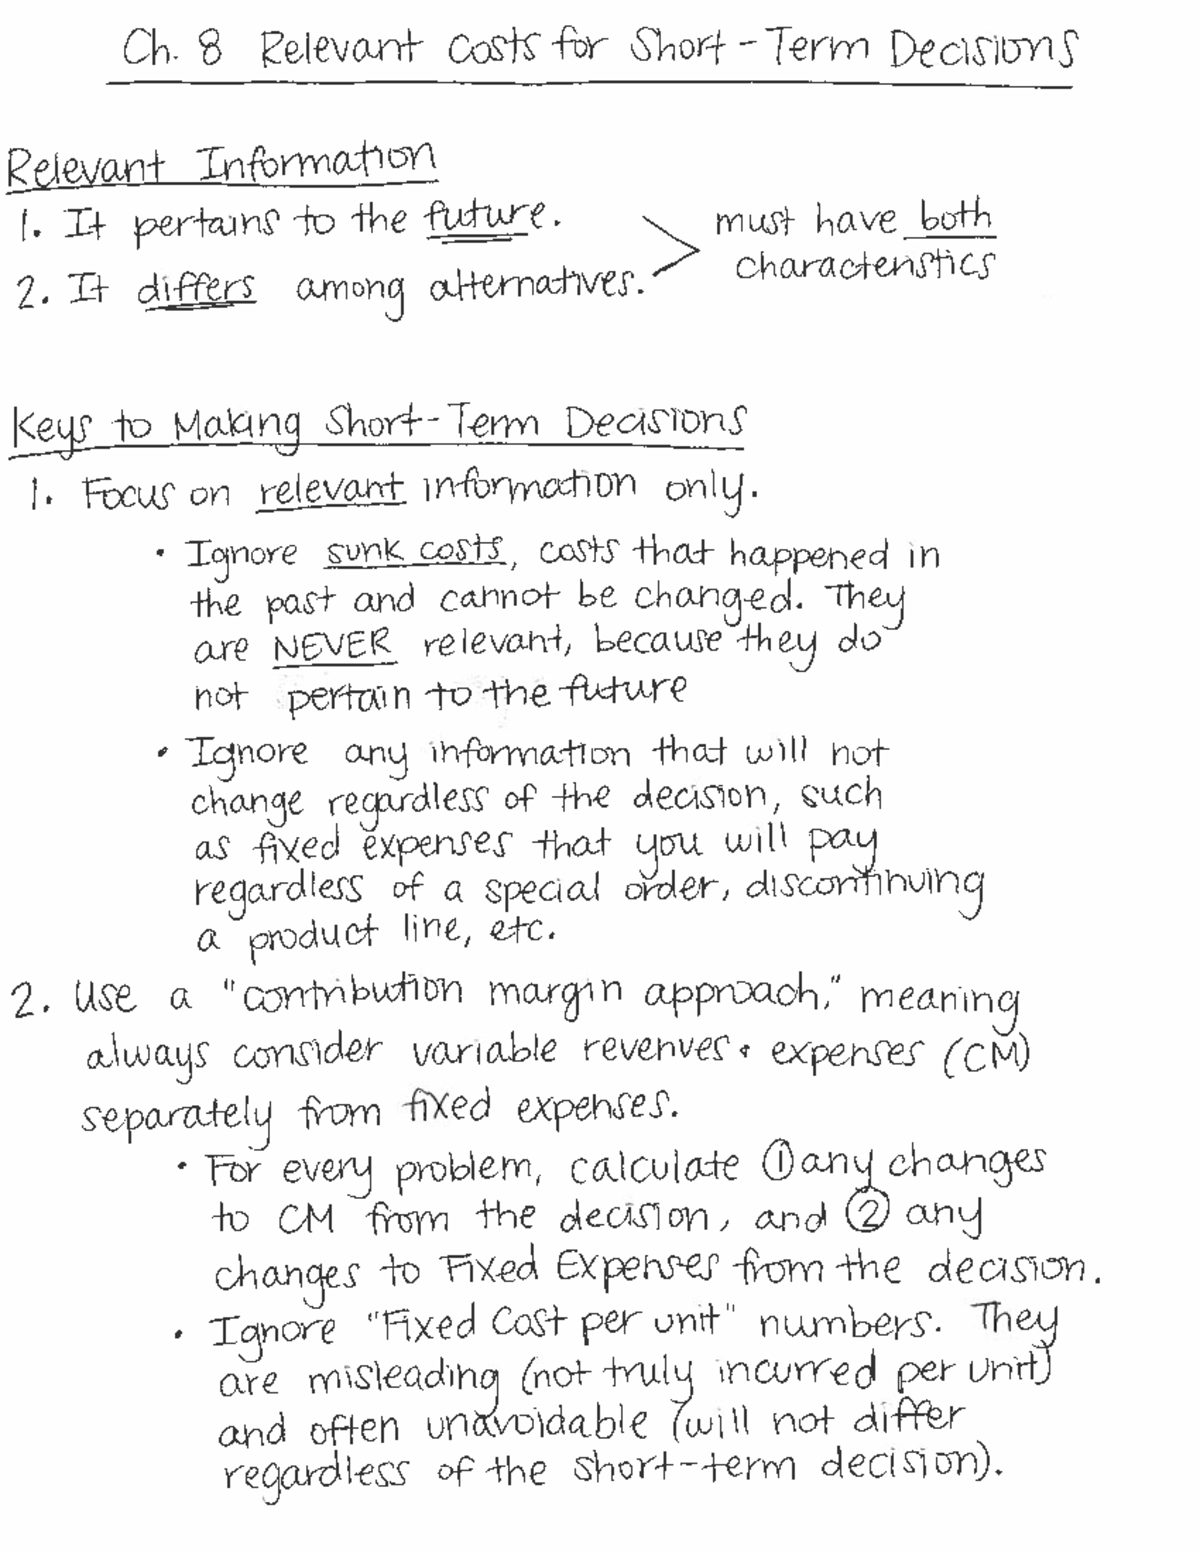 Ch. 8 Relevant Costs for Short-Term Decisions
Relevant Information
1. It pertains to the future.
2. It differs among alternatives.
must have both
characteristics
Keys to Making Short-Term Decisions
1. Focus on relevant information only.
• Ignore sunk costs, costs that happened in
the past and cannot be changed. They
are NEVER relevant, because they do
not pertain to the future
• Ignore any information that will not
change regardless of the decision, such
as fixed expenses that you will pay
regardless of a special order, discontinuing
a product line, etc.
2. Use a "contribution margin approach," meaning
always consider variable revenues + expenses (CM)
separately from fixed expenses.
• For every problem, calculate ① any changes
to CM from the decision, and ② any
changes to Fixed Expenses from the decision.
• Ignore "Fixed Cost per unit" numbers. They
are misleading (not truly incurred per unit)
and often unavoidable (will not differ
regardless of the short-term decision).